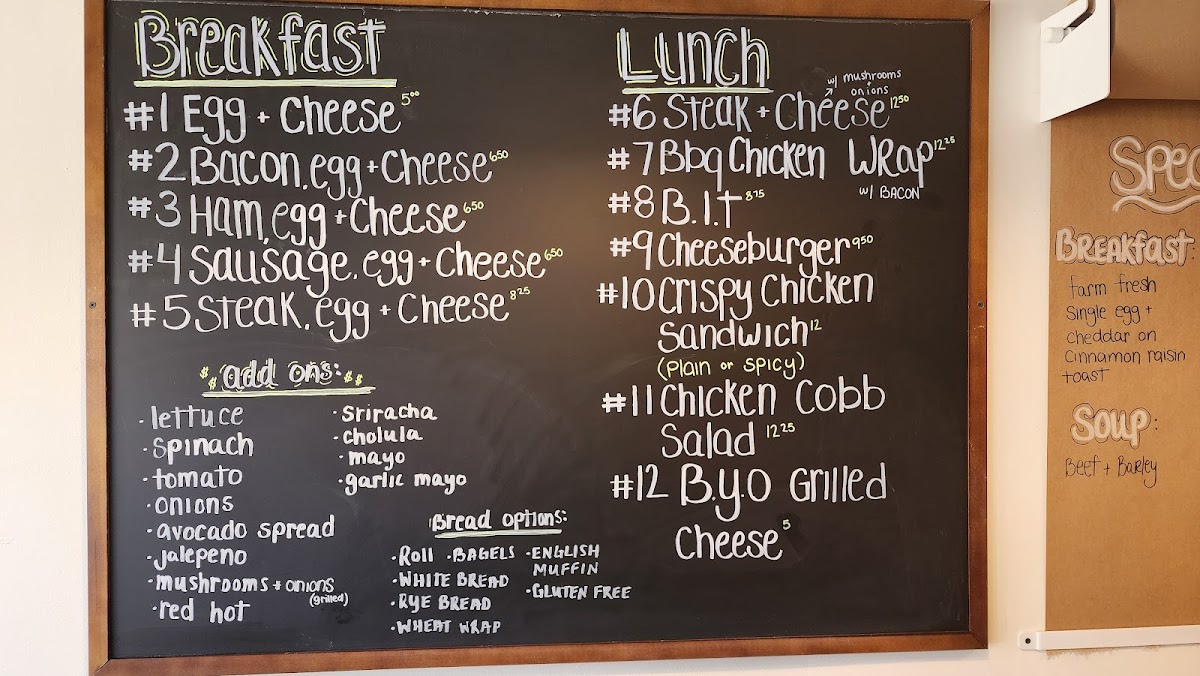 Breakfast
#1 Egg + Cheese 5⁰⁰
#2 Bacon, egg + Cheese 6⁵⁰
#3 Ham, egg + Cheese 6⁵⁰
#4 Sausage, egg + Cheese 6⁵⁰
#5 Steak, egg + Cheese 8²⁵
$ $ add ons: $ $
· lettuce
· spinach
· tomato
· onions
· avocado spread
· jalepeno
· mushrooms + onions
(grilled)
· red hot
· Sriracha
· cholula
· mayo
· garlic mayo
Bread options:
· Roll · BAGELS · ENGLISH
MUFFIN
· WHITE BREAD
· GLUTEN FREE
· RYE BREAD
· WHEAT WRAP
Lunch
w/ mushrooms
onions
#6 Steak + Cheese 12⁵⁰
#7 Bbq Chicken Wrap 12²⁵
w/ BACON
#8 B.l.t 8⁷⁵
#9 Cheeseburger 9⁵⁰
#10 Crispy Chicken
Sandwich 12
(Plain or Spicy)
#11 Chicken Cobb
Salad 12²⁵
#12 B.y.O Grilled
Cheese 5
Spec
BREAKfast:
farm fresh
single egg +
cheddar on
cinnamon raisin
toast
Soup:
Beef + Barley